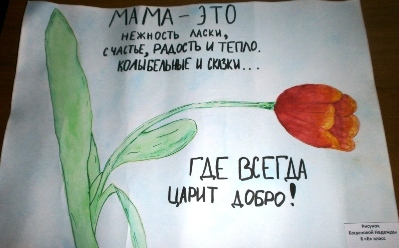 МАМА – ЭТО
НЕЖНОСТЬ ЛАСКИ,
СЧАСТЬЕ, РАДОСТЬ И ТЕПЛО.
КОЛЫБЕЛЬНЫЕ И СКАЗКИ...
ГДЕ ВСЕГДА
ЦАРИТ ДОБРО!
Рисунок
Надежды
5 «В» класс